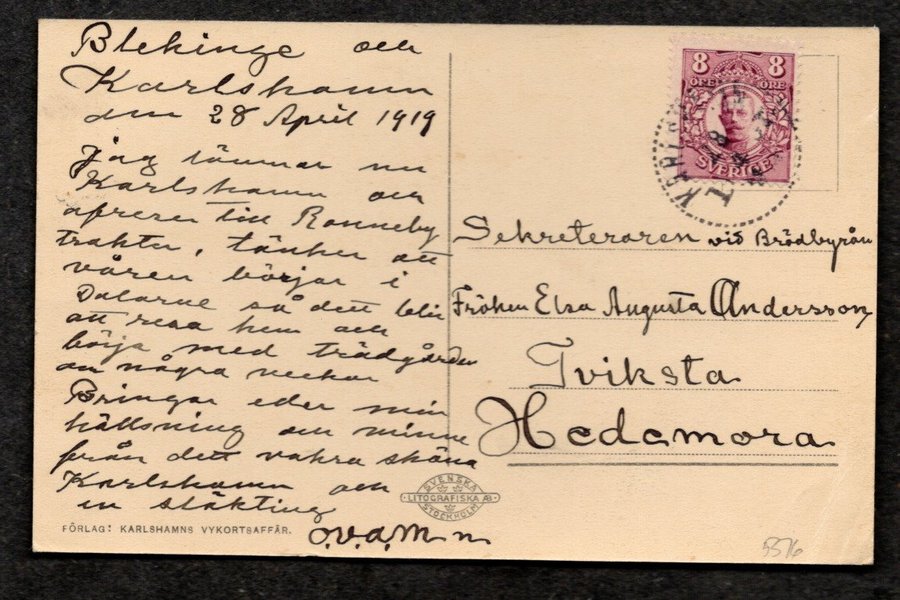 Blekinge och
Karlshamn
den 28 April 1919
Jag lämnar nu
Karlshamn och
afreser till Ronneby
trakten, tänker att
våren börjar i
Dalarne så det blir
att resa hem och
börja med trädgården
om några veckor
Bringar eder min
hällsning och minne
från det vakra sköna
Karlshamn och
en släkting
o.v.a.M n
FÖRLAG: KARLSHAMNS VYKORTSAFFÄR.
SVENSKA
LITOGRAFISKA AB
STOCKHOLM
8 8
ÖRE ÖRE
SVERIGE
Sekreteraren vid Brödbyrån
Fröken Elsa Augusta Andersson
Tviksta
Hedemora
5576